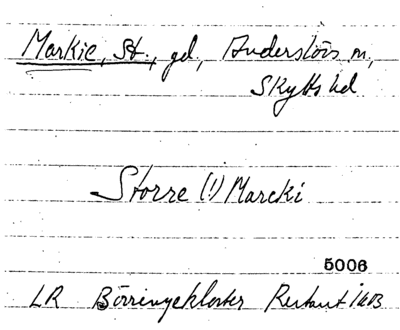 Markie, St., gd, Anderslövs sn,
Skytts hd
Storre (!) Marcki
5006
LR Börringekloster